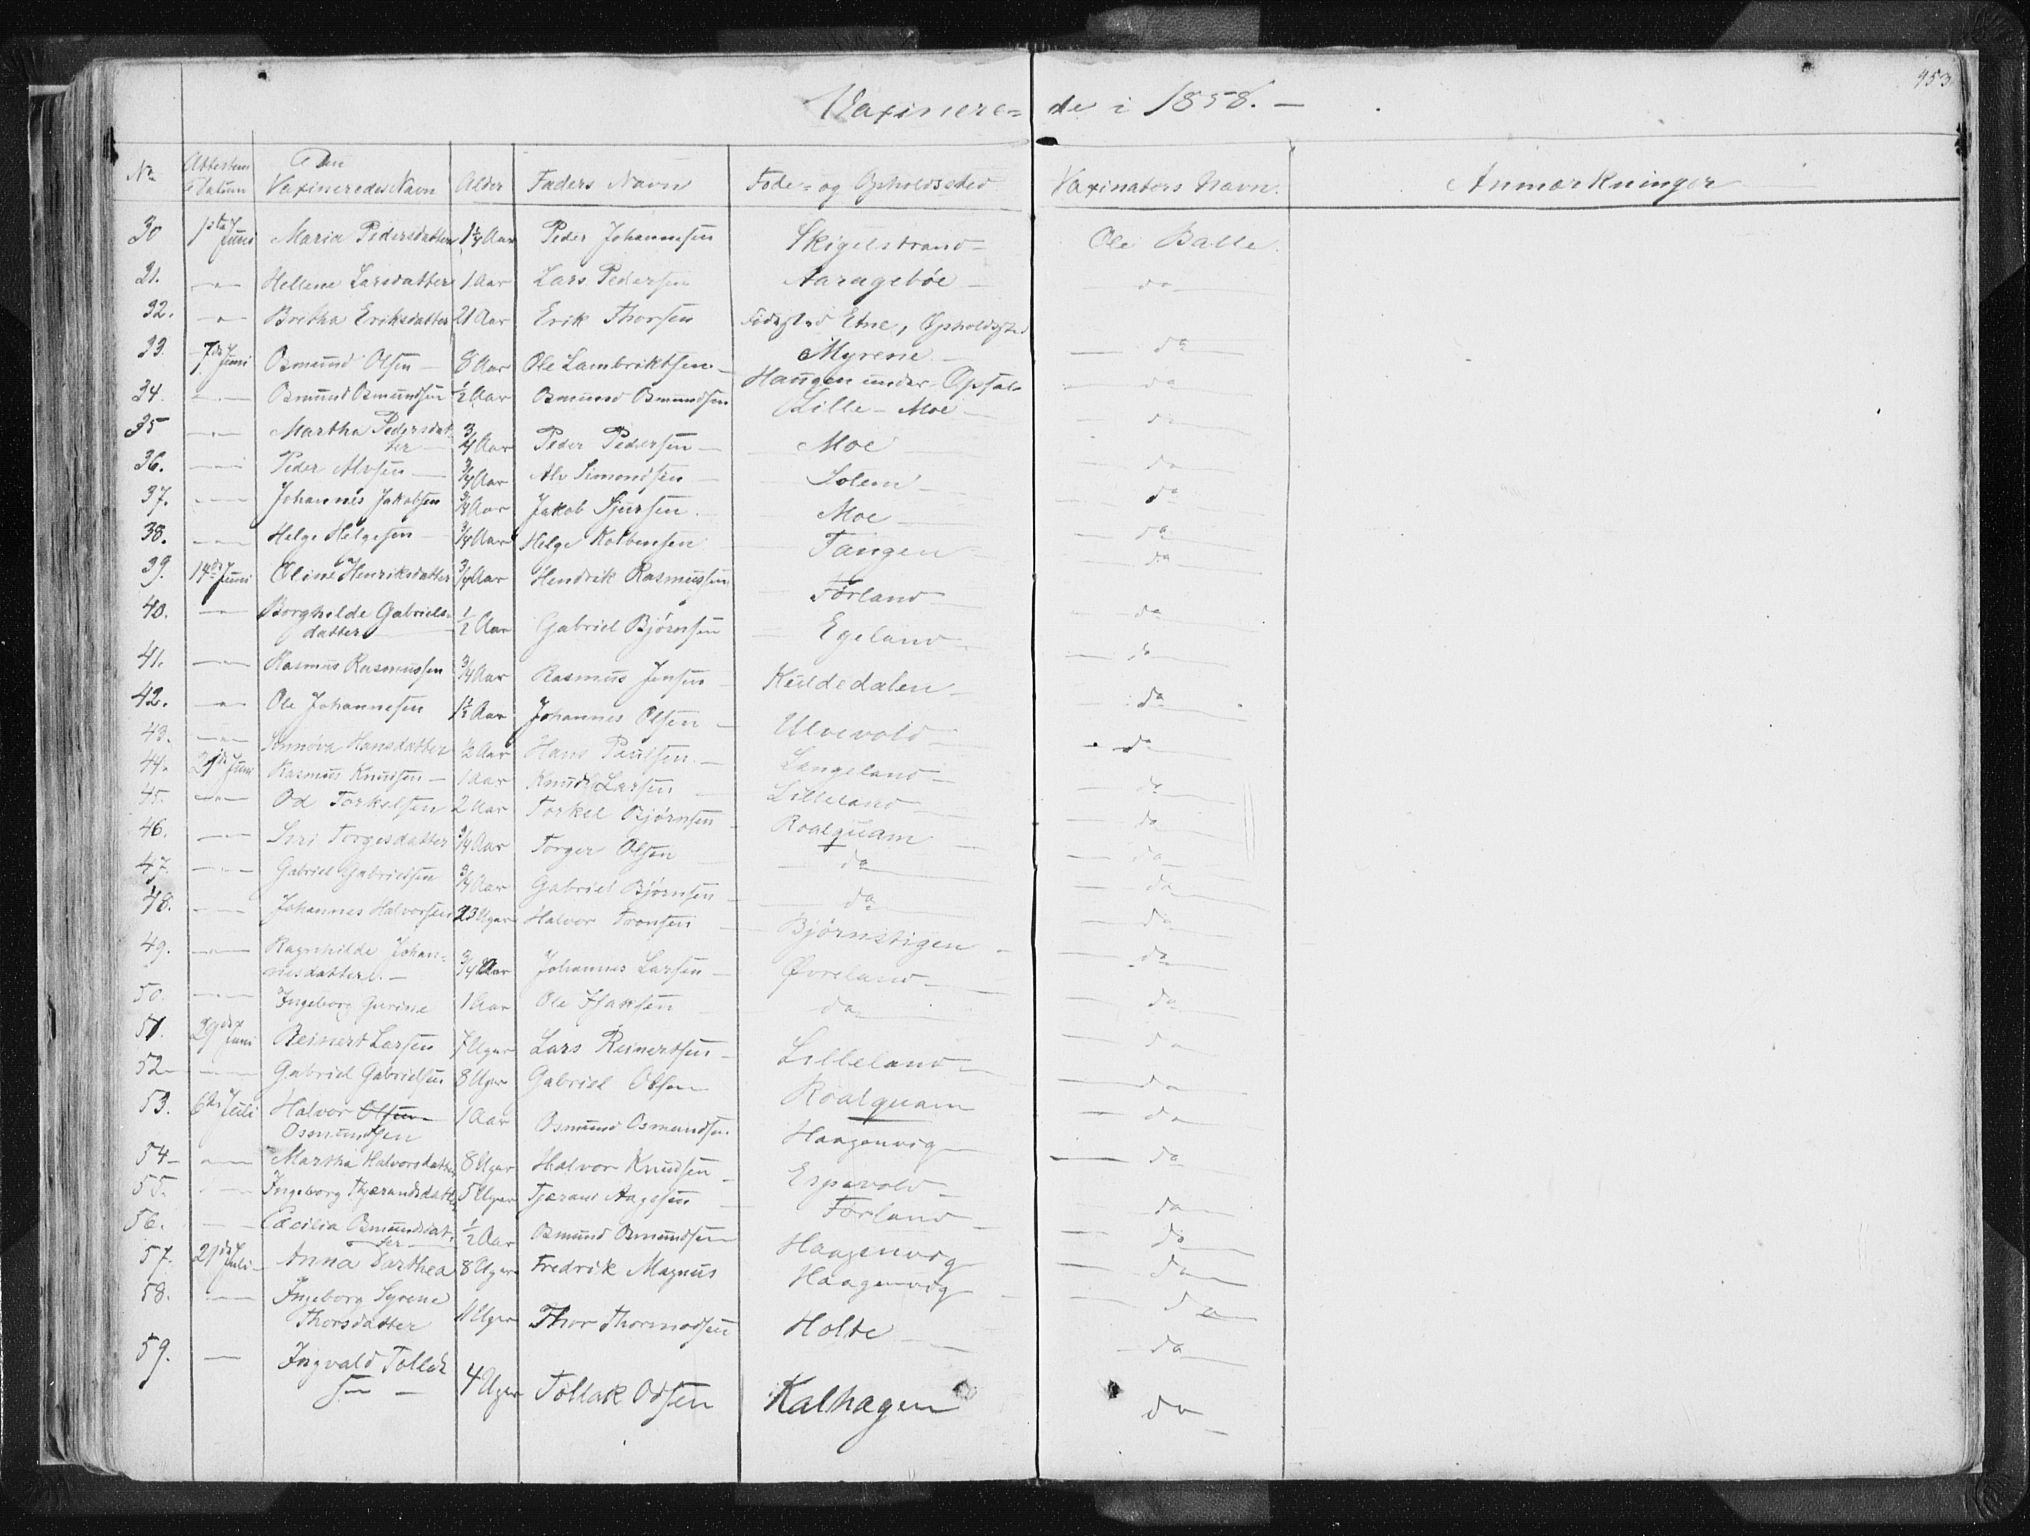 453
Vaxinere= de i 1858. —
No
Attestens Datum
Den Vaxineredes Navn
Alder
Faders Navn
Føde- og Opholdssted
Vaxinators Navn
Anmærkninger
30 1ste Juni Maria Pedersdatter 1¼ Aar Peder Johannesen Skigelstrand Ole Balle.
31. —"— Hellene Larsdatter 1 Aar Lars Pedersen Aaragebøe — do —
32. —"— Bretha Eriksdatter 21 Aar Erik Thorsen Fødested Etne, Opholdssted
33. 7de Juni Osmund Olsen — 8 Aar Ole Lambriktsen — Myrene — — do —
34. —"— Osmund Osmundsen ½ Aar Osmund Osmundsen Haugen under Opsal — do —
35 —"— Martha Pedersdatter ¾ Aar Peder Pedersen — Lille-Moe — — do —
36. —"— Peder Alvsen — ¾ Aar Alv Simondsen Moe — do —
37. —"— Johannes Jakobsen ¾ Aar Jakob Sjursen. Solem — — do —
38. —"— Helge Helgesen ¾ Aar Helge Kolbensen Moe — — do —
39. 14de Juni Oline Henriksdatter ¾ Aar Hendrik Rasmussen Tangen — do —
40. —"— Borghilde Gabrielsdatter ½ Aar Gabriel Bjørnsen Førland — do —
41. —"— Rasmus Rasmussen ¾ Aar Rasmus Jensen Egeland — do —
42. —"— Ole Johannesen 1½ Aar Johannes Olsen — Kuldedalen — — do —
43. —"— Sønnøva Hansdatter ½ Aar Hans Paulsen. — Ulvevold — — do —
44. 21de Juni Rasmus Knudsen — 1 Aar Knud Larsen Langeland — — do —
45. —"— Od Torkelsen 2 Aar Torkel Bjørnsen Lilleland — — do —
46. —"— Siri Torgesdatter ¾ Aar Torger Olsen Roalquam — do —
47. —"— Gabriel Gabrielsen ¾ Aar Gabriel Bjørnsen — do — — do —
48. —"— Johannes Halvorsen 23 Uger Halvor Tronsen — do — — do —
49. —"— Ragnhilde Johannesdatter. — ¾ Aar Johannes Larsen — Bjørnstigen — — do —
50. —"— Ingeborg Gurine 1 Aar Ole Isaksen Øvreland — — do —
do —
51. 29de Juni Reinert Larsen 7 Uger Lars Reinertsen — Lilleland — — do —
52 —"— Gabriel Gabrielsen 8 Uger Gabriel Olsen Roalquam — do —
53. 6te Juli Halvor Olsen Osmundsen 1 Aar Osmund Osmundsen Haagenvig — do —
54 —"— Martha Halvorsdatter 8 Uger Halvor Knudsen — Espevold — — do —
55. —"— Ingeborg Tjerandsdatter 5 Uger Tjerand Aagesen Førland — do —
56. —"— Cecilia Osmundsdatter ½ Aar Osmund Osmundsen Haagenvig — do —
57. 21de Juli Anna Darthea 8 Uger Fredrik Magnus Haagenvig — do —
58. —"— Ingeborg Syrene Thorsdatter Uger Thor Thormodsen Holte — do —
— do —
59. — Ingvald Tollaksen — 4 Uger Tollak Odsen Kalhagen do —